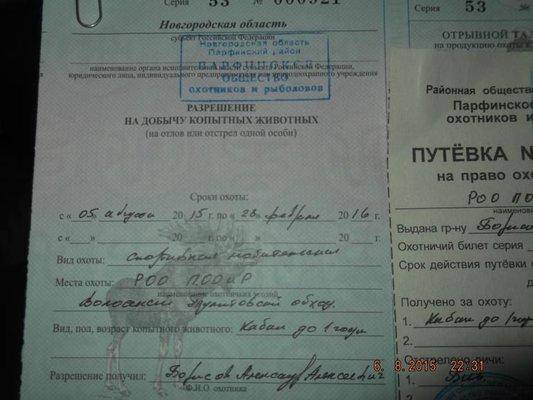 Серия 53 № 000521
Серия 53 №
Новгородская область
субъект Российской Федерации
ОТРЫВНОЙ ТА
на продукцию охоты к
Новгородская область
Парфинский район
ПАРФИНСКОЕ
ОБЩЕСТВО
охотников и рыболовов
наименование органа исполнительной власти субъекта Российской Федерации,
юридического лица, индивидуального предпринимателя или природоохранного учреждения
РАЗРЕШЕНИЕ
НА ДОБЫЧУ КОПЫТНЫХ ЖИВОТНЫХ
(на отлов или отстрел одной особи)
Сроки охоты:
с « 05 августа 2015 г. по « 28 февраля 2016 г.
с « » 20 г. по « » 20 г.
Вид охоты: Спортивная любительская
Места охоты: РОО ПООиР
наименование охотничьих угодий
обход
Вид, пол, возраст копытного животного: Кабан до 1 года
Разрешение получил: Борисов Александр Алексеевич
Ф.И.О. охотника
Районная обществе
Парфинское
охотников и
ПУТЁВКА №
на право охо
РОО ПО
наименован
Выдана гр-ну Борис
Охотничий билет серия
Срок действия путёвки
Получено за охоту:
1. Кабан до 1 года
2.
Отстрелено дичи:
1.
2.
6. 8.2015 22:31